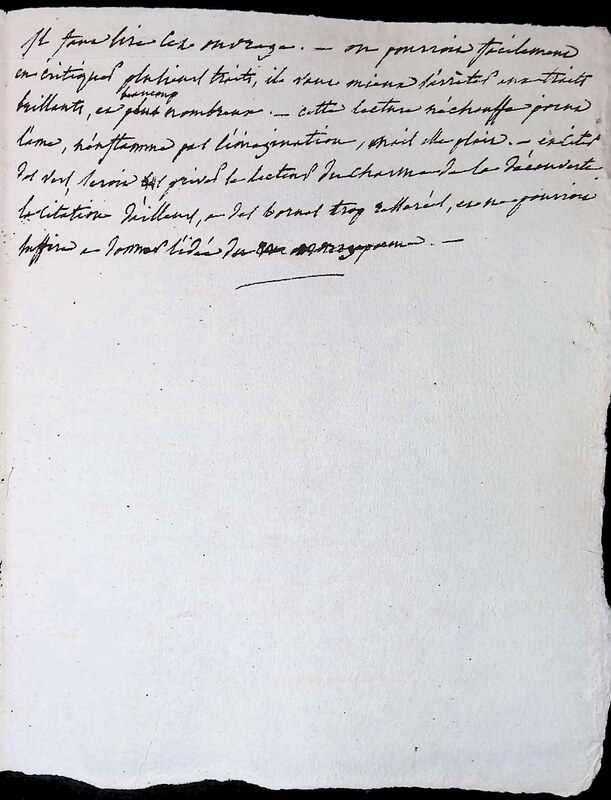 Il faut lire cet ouvrage. — on pourroit facilement
en critiquer plusieurs traits, il vaut mieux s'arrêter aux traits
beaucoup
brillants, et plus nombreux. — cette lecture n'échauffe point
l'ame, n'enflamme pas l'imagination, mais elle plait. — en citer
des vers seroit priver le lecteur du charme de la découverte
la citation d'ailleurs, a des bornes trop resserrées, et ne pourroit
suffire à donner l'idée du poeme. —